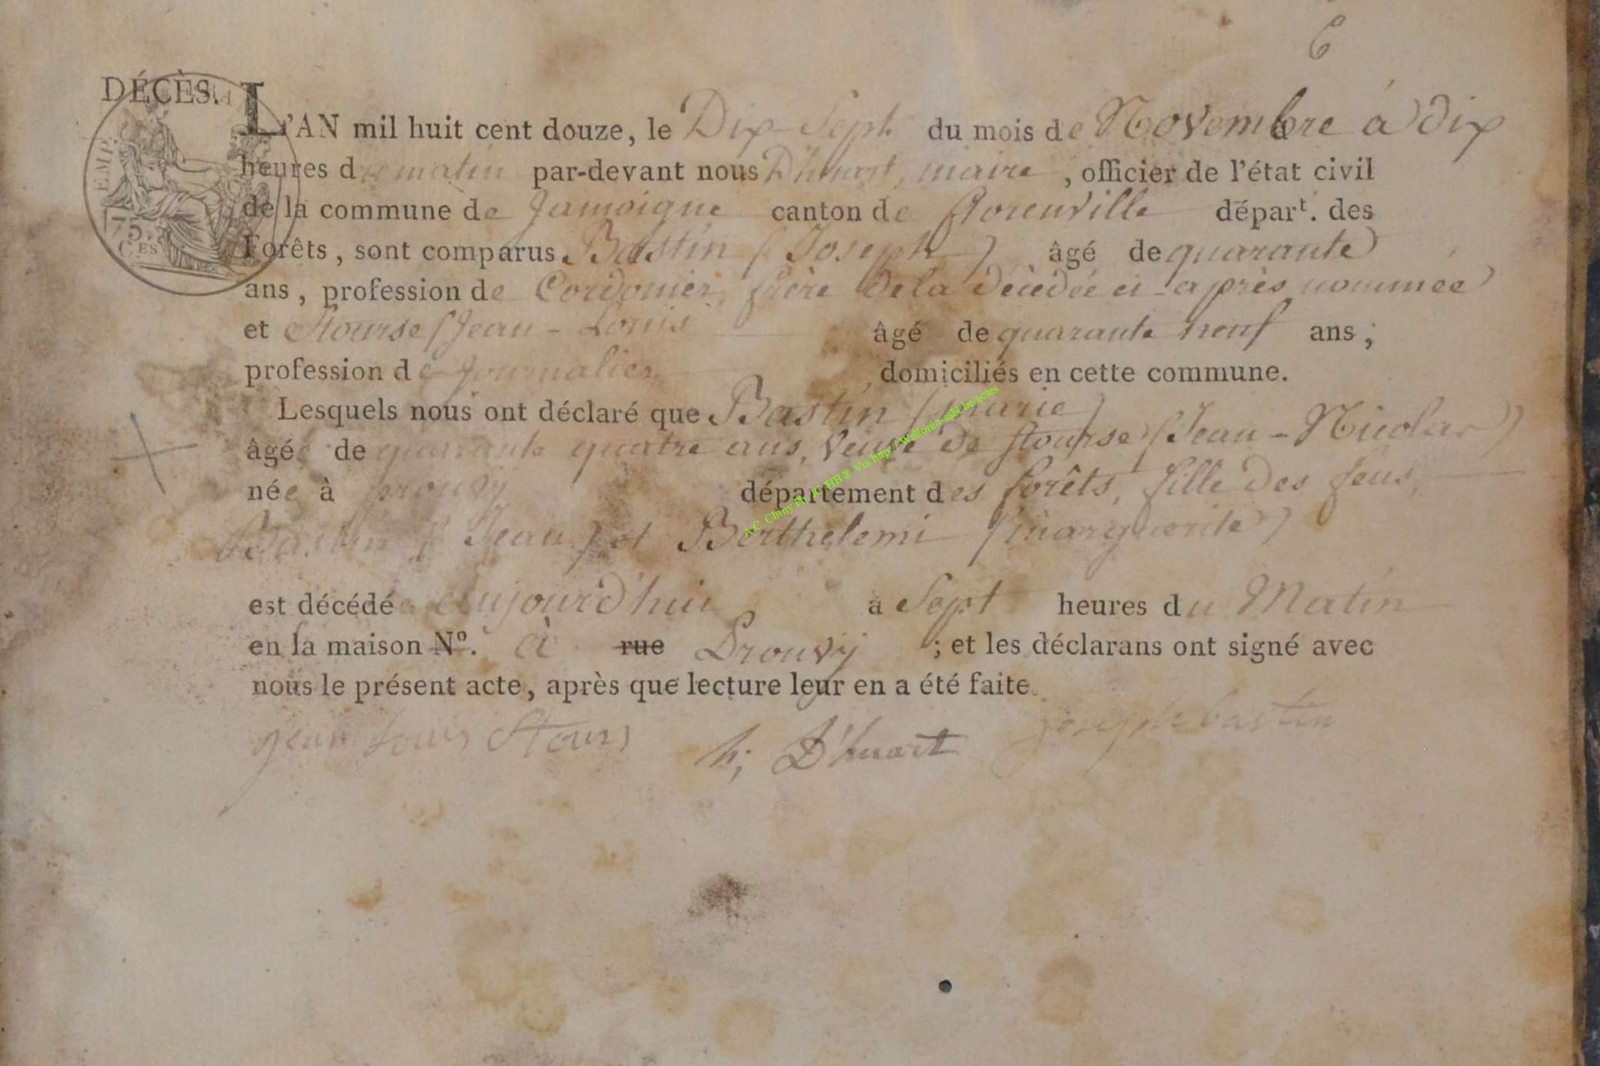 6
DÉCÈS.
L'AN mil huit cent douze, le Dix-Sept du mois de Novembre à dix
heures de matin par-devant nous D'huart, maire, officier de l'état civil
de la commune de Jamoigne canton de florenville départ. des
Forêts, sont comparus Bastin (Joseph) âgé de quarante
ans, profession de Cordonier, frère de la décédée ci-après nommée
et Stourse (Jean-Louis âgé de quarante neuf ans;
profession de journalier domiciliés en cette commune.
Lesquels nous ont déclaré que Bastin (Marie)
âgée de quarante quatre ans, veuve de Stourse (Jean-Nicolas)
née à prouvy département des forêts, fille des feus,
Bastin (Jean) et Berthelemi (marguerite)
est décédée aujourd'hui à Sept heures du Matin
en la maison N°. à rue Prouvy; et les déclarans ont signé avec
nous le présent acte, après que lecture leur en a été faite.
jean Louis Stours h; D'huart joseph bastin
EMP.
75.
CES